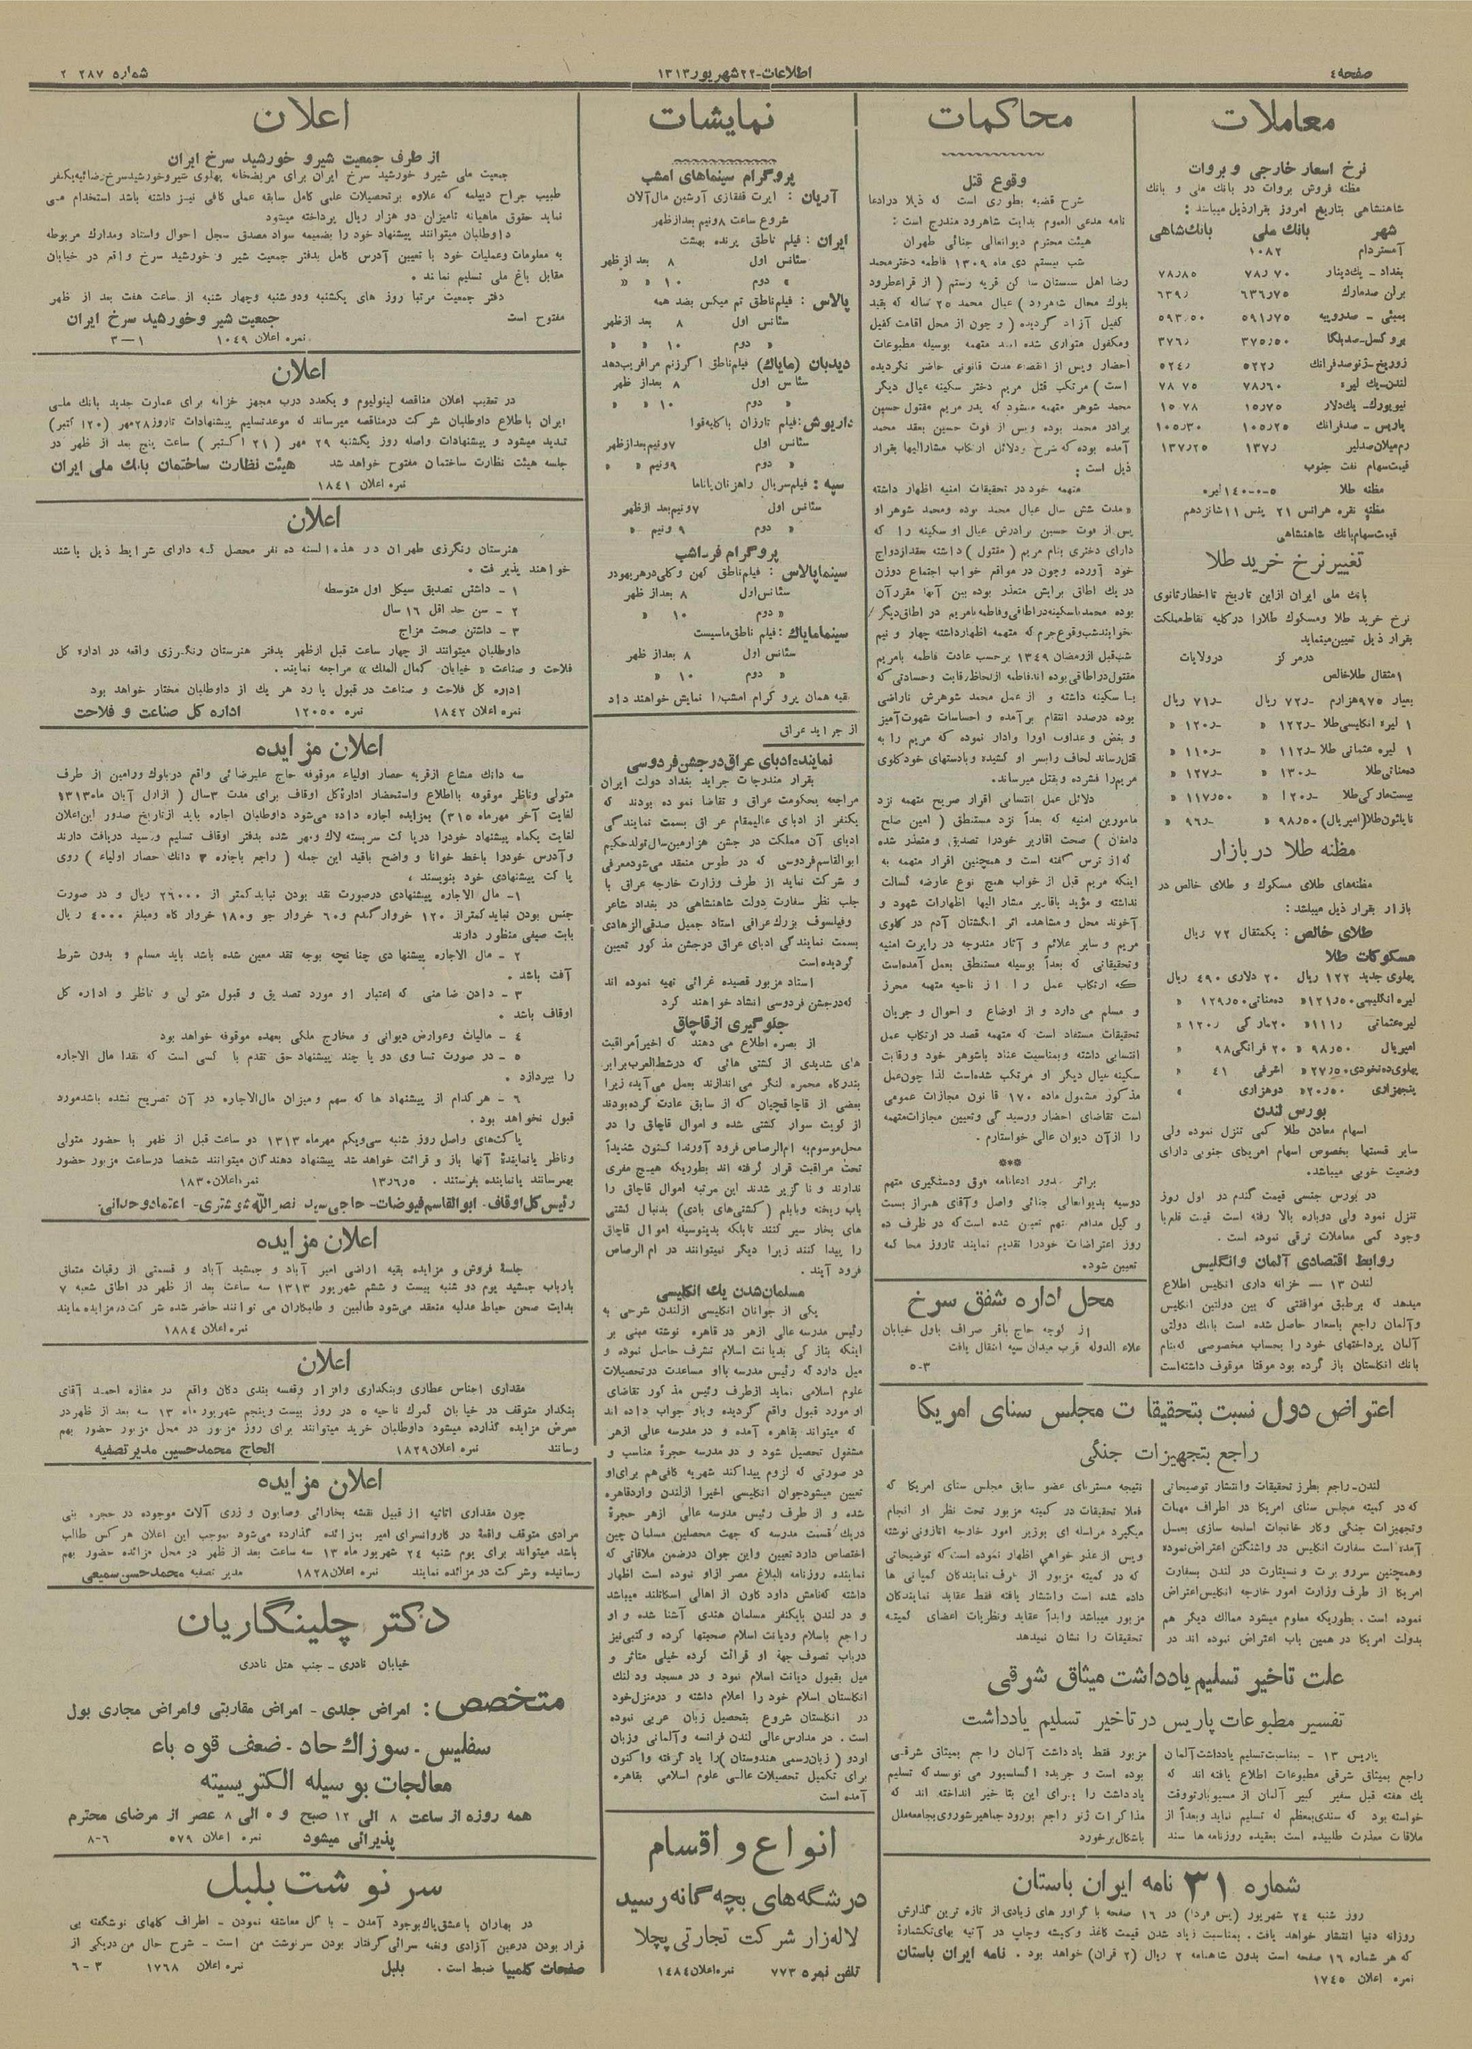 صفحه٤
اطلاعات-٢٢شهریور١٣١٣
شماره ٢٨٧ ٢
معاملات
نرخ اسعار خارجی و بروات
مظنه فروش بروات در بانك ملی و بانك
شاهنشاهی بتاریخ امروز بقرارذیل میباشد :
شهر بانك ملی بانك‌شاهی
آمستردام ١٠٨٢
بغداد - یك‌دینار ٧٨٫٧٠ ٧٨٫٨٥
برلن صدمارك ٦٣٦٫٧٥ ٦٣٩٫
بمبئی - صدروپیه ٥٩١٫٧٥ ٥٩٣٫٥٠
بروکسل-صدبلگا ٣٧٥٫٥٠ ٣٧٦٫
لندن-یك لیره ٧٨٫٦٠ ٧٨ ٧٥
نیویورك-یك‌دلار ١٥٫٧٥ ١٥ ٧٨
پاریس - صدفرانك ١٠٥٫٢٥ ١٠٥٫٣٠
رم‌میلان‌صدلیر ١٣٧٫ ١٣٧٫٢٥
قیمت‌سهام نفت جنوب
مظنه طلا ٥-٠-١٤٠لیره
مظنه نقره هرانس ٢١ پنس ١١شانزدهم
قیمت‌سهام‌بانك شاهنشاهی
تغییرنرخ خرید طلا
بانك ملی ایران ازاین تاریخ تااخطارثانوی
نرخ خرید طلا ومسکوك طلارا درکلیه نقاط‌مملکت
بقرار ذیل تعیین‌مینماید
درمرکز درولایات
١مثقال طلاخالص
بعیار ٩٧٥هزارم ٧٢٫- ریال ٧١٫- ریال
١ لیره انگلیسی‌طلا ١٢٢٫- « ١٢٠٫- «
١ لیره عثمانی طلا ١١٢٫- « ١١٠٫- «
ده‌منات‌طلا ١٣٠٫- « ١٢٧٫- «
بیست‌مارکی‌طلا ١٢٠٫- « ١١٧٫٥٠ «
ناپلئون‌طلا(امپریال)٩٨٫٥٠ « ٩٦٫- «
مظنه طلا در بازار
مظنه‌های طلای مسکوك و طلای خالص در
بازار بقرار ذیل میباشد :
طلای خالص : یکمثقال ٧٢ ریال
مسکوکات طلا
پهلوی جدید ١٢٢ ریال ٢٠ دلاری ٤٩٠ ریال
لیره انگلیسی١٢١٫٥٠« ده‌مناتی١٢٩٫٥٠ «
لیره‌عثمانی ١١١٫« ٢٠مارکی ١٢٠٫ «
امپریال ٩٨٫٥٠ « ٢٠ فرانگی٩٨ «
پهلوی‌ده‌نخودی٢٧٫٥٠« اشرفی ٤١ «
پنجهزاری ٢٠٫٥٠« دوهزاری «
بورس لندن
اسهام معادن طلا کمی تنزل نموده ولی
سایر قسمتها بخصوص اسهام امریکای جنوبی دارای
وضعیت خوبی میباشد.
در بورس جنسی قیمت گندم در اول روز
تنزل نمود ولی دوباره بالا رفته است قیمت قلم‌با
وجود کمی معاملات ترقی نموده است .
روابط اقتصادی آلمان وانگلیس
لندن ١٣ — خزانه داری انگلیس اطلاع
میدهد که برطبق موافقتی که بین دولتین انگلیس
وآلمان راجع باسعار حاصل شده است بانك دولتی
آلمان پرداختهای خود را بحساب مخصوصی که‌بنام
بانك انگلستان باز گرده بود موقتا موقوف داشته‌است
محاکمات
وقوع قتل
شرح قضیه بطوری است که ذیلا درادعا
نامه مدعی العموم بدایت شاهرود مندرج است :
هیئت محترم دیوانعالی جنائی طهران
شب بیستم دی ماه ١٣٠٩ فاطمه دخترمحمد
رضا اهل سیستان ساکن قریه رستم ( از قراءطرود
بلوك محال شاهرود ) عیال محمد ٢٥ ساله که بقید
کفیل آزاد گردیده ( و چون از محل اقامت کفیل
ومکفول متواری شده اند متهمه بوسیله مطبوعات
احضار وپس از انقضاء مدت قانونی حاضر نگردیده
است ) مرتکب قتل مریم دختر سکینه عیال دیگر
محمد شوهر متهمه میشود که پدر مریم مقتول حسین
برادر محمد بوده وپس از فوت حسین بعقد محمد
آمده بوده که‌شرح ودلائل ارتکاب مشارالیها بقرار
ذیل است :
متهمه خوددر تحقیقات امنیه اظهار داشته
«مدت شش سال عیال محمد بوده ومحمد شوهر او
پس از فوت حسین برادرش عیال او سکینه را که
دارای دختری بنام مریم (مقتول ) داشته بعقدازدواج
خود آورده وچون در مواقع خواب اجتماع دوزن
دریك اطاق برایش متعذر بوده بین آنها مقررآن
بوده محمدباسکینه‌دراطاقی‌وفاطمه‌بامریم در اطاق‌دیگر
خوابندشب‌وقوع‌جرم‌که متهمه اظهارداشته چهار و نیم
شب‌قبل ازرمضان ١٣٤٩ برحسب عادت فاطمه بامریم
مقتول‌دراطاقی‌بوده اندفاطمه ازلحاظ‌رقابت وحسادتی که
بـا سکینه داشته و از عمل محمد شوهرش ناراضی
بوده درصدد انتقام برآمده و احساسات شهوت‌آمیز
و بغض و عداوت اورا وادار نموده که مریم را به
قتل‌رساند لحاف رابسر او کشیده وبادستهای خودگلوی
مریم‌را فشرده وبقتل میرساند.
دلائل عمل انتسابی اقرار صریح متهمه نزد
مامورین امنیه که بعداً نزد مستنطق ( امین صلح
دامغان ) صحت اقاریر خودرا تصدیق و متعذر شده
که‌از ترس گفته است و همچنین اقرار متهمه به
اینکه مریم قبل از خواب هیچ نوع عارضه کسالت
نداشته و مؤید باقاریر مشار الیها اظهارات شهود و
آخوند محل ومشاهده اثر انگشتان آدم در گلوی
مریم و سایر علائم و آثار مندرجه در راپرت امنیه
وتحقیقاتی که بعداً بوسیله مستنطق بعمل آمده‌است
که ارتکاب عمل را از ناحیه متهمه محرز
و مسلم می دارد و از اوضاع و احوال و جریان
تحقیقات مستفاد است که متهمه قصد در ارتکاب عمل
انتسابی داشته وبمناسبت عناد باشوهر خود ورقابت
سکینه عیال دیگر او مرتکب شده‌است لذا چون‌عمل
مذکور مشمول ماده ١٧٠ قانون مجازات عمومی
است تقاضای احضار ورسیدگی وتعیین مجازات‌متهمه
را ازآن دیوان عالی خواستارم .
٭٭٭
براثر صدور ادعانامه فوق ودستگیری متهم
دوسیه بدیوانعالی جنائی واصل وآقای همراز بسمت
وکیل مدافع متهم تعیین شده است‌که در ظرف ده
روز اعتراضات خودرا تقدیم نمایند تاروز محاکمه
تعیین شود.
محل اداره شفق سرخ
از کوچه حاج باقر صراف باول خیابان
علاء الدوله قرب میدان سپه انتقال یافت
٣-٥
نمایشات
پروگرام سینماهای امشب
آریان : ایرت قفقازی آرشین مال‌آلان
شروع ساعت ٨ونیم بعدازظهر
ایران : فیلم ناطق پرنده بهشت
سئانس اول ٨ بعد ازظهر
« دوم ١٠ « «
پالاس : فیلم‌ناطق تم میکس بضد همه
سئانس اول ٨ بعد ازظهر
« دوم ١٠ « «
دیدبان (مایاك) فیلم‌ناطق اگرزنم مرافریب‌دهد
سئانس اول ٨ بعداز ظهر
« دوم ١٠ « «
داریوش:فیلم تارزان باکاپه‌قوا
سئانس اول ٧ونیم‌بعدازظهر
« دوم ٩ونیم « «
سپه : فیلم‌سریال راهزنان‌پاناما
سئانس اول ٧ونیم‌بعد ازظهر
« دوم ٩ ونیم « «
پروگرام فرداشب
سینماپالاس : فیلم‌ناطق کهن وکلی‌درهربهودر
سئانس‌اول ٨ بعداز ظهر
« دوم ١٠ «
سینمامایاك: فیلم ناطق‌ماسیست
سئانس اول ٨ بعداز ظهر
« دوم ١٠ «
بقیه همان پروگرام امشب‌را نمایش خواهند داد
از جراید عراق
نماینده‌ادبای عراق‌درجشن‌فردوسی
بقرار مندرجات جراید بغداد دولت ایران
مراجعه بحکومت عراق و تقاضا نموده بودند که
یکنفر از ادبای عالیمقام عراق بسمت نمایندگی
ادبای آن مملکت در جشن هزارمین‌سال‌تولدحکیم
ابوالقاسم‌فردوسی که در طوس منعقد میشودمعرفی
و شرکت نماید از طرف وزارت خارجه عراق با
جلب نظر سفارت دولت شاهنشاهی در بغداد شاعر
وفیلسوف بزرك‌عراقی استاد جمیل صدقی‌الزهادی
بسمت نمایندگی ادبای عراق درجشن مذکور تعیین
گردیده است
استاد مزبور قصیده غرائی تهیه نموده اند
که‌درجشن فردوسی انشاد خواهند کرد
جلوگیری ازقاچاق
از بصره اطلاع می دهند که اخیراًمراقبت
های شدیدی از کشتی هائی که درشط‌العرب‌برابر
بندرگاه محمره لنگر می اندازند بعمل می‌آید، زیرا
بعضی از قاچاقچیان که از سابق عادت گرده‌بودند
از کویت سوار کشتی شده و اموال قاچاق را در
محل‌موسوم‌به ام‌الرصاص فرود آورندا کنون شدیداً
تحت مراقبت قرار گرفته اند بطوریکه هیـچ مفری
ندارند و ناگزیر شدند این مرتبه اموال قاچاق را
باب ریخته وبابلم (کشتی‌های بادی) بدنبال کشتی
های بخار سیر کنند تابلکه بدینوسیله اموال قاچاق
را پیدا کنند زیرا دیگر نمیتوانند در ام‌الرصاص
فرود آیند .
مسلمان‌شدن یك انگلیسی
یکی از جوانان انگلیسی ازلندن شرحی به
رئیس مدرسه عالی ازهر در قاهره نوشته مبنی بر
اینکه بتازگی بدیانت اسلام تشرف حاصل نموده و
میل دارد که رئیس مدرسه بااو مساعدت درتحصیلات
علوم اسلامی نماید ازطرف رئیس مذکور تقاضای
او مورد قبول واقع گردیده وباو جواب داده اند
که میتواند بقاهره آمده و در مدرسه عالی ازهر
مشغول تحصیل شود و در مدرسه حجرۀ مناسب و
در صورتی که لزوم پیداکند شهریه کافی‌هم برای‌او
تعیین میشودجوان انگلیسی اخیرا ازلندن واردقاهره
شده و از طرف رئیس مدرسه عالی ازهر حجرۀ
دریك‌قسمت مدرسه که جهت محصلین مسلمان چین
اختصاص دارد تعیین واین جوان درضمن ملاقاتی که
نماینده روزنامه البلاغ مصر ازاو نموده است اظهار
داشته که‌نامش داود کاون از اهالی اسکاتلند میباشد
و در لندن بایکنفر مسلمان هندی آشنا شده و او
راجع باسلام ودیانت اسلام صحبتها کرده و کتبی‌نیز
درباب تصوف جهة او قرائت کرده خیلی متاثر و
میل بقبول دیانت اسلام نمود و در مسجد ودلنك
انگلستان اسلام خود را اعلام داشته و درمنزل‌خود
در انگلستان شروع بتحصیل زبان عربی نموده
است . در مدارس عالی لندن فرانسه وآلمانی وزبان
اردو ( زبان‌رسمی هندوستان )را یاد گرفته واکنون
برای تکمیل تحصیلات عالـی علوم اسلامی بقاهره
آمده است
انواع و اقسام
درشگه‌های بچه گانه رسید
لاله‌زار شرکت تجارتی پچلا
تلفن نمره ٧٧٣ نمره‌اعلان١٤٨٤
اعتراض دول نسبت بتحقیقات مجلس سنای امریکا
راجع بتجهیزات جنگی
لندن-راجع بطرز تحقیقات وانتشار توصیحاتی
که‌در کمیته مجلس سنای امریکا در اطراف مهمات
وتجهیزات جنگی وکار خانجات اسلحه سازی بعمـل
آمده است سفارت انگلیس در واشنگتن اعتراض‌نموده
امریکا از طرف وزارت امور خارجه انگلیس‌اعتراض
نموده است . بطوریکه معلوم میشود ممالك دیگر هم
بدولت امریکا در همین باب اعتراض نموده اند در
فعلا تحقیقات در کمیته مزبور تحت نظر او انجام
میگیرد مراسله ای بوزیر امور خارجه اتازونی نوشته
وپس از عذر خواهی اظهار نموده است‌که توضیحاتی
که در کمیته مزبور از طرف نمایندگان کمپانی ها
داده شده است وانتشار یافته فقط عقاید نمایندگان
مزبور میباشد وابداً عقاید ونظریات اعضای کمیته
تحقیقات را نشان نمیدهد
علت تاخیر تسلیم یادداشت میثاق شرقی
تفسیر مطبوعات پاریس درتاخیر تسلیم یادداشت
پاریس ١٣ - بمناسبت‌تسلیم یادداشت‌آلمان
راجع بمیثاق شرقی مطبوعات اطلاع یافته اند که
یك هفته قبل سفیر کبیر آلمان از مسیوبارتووقت
ملاقات معذرت طلبیده است بعقیده روزنامه ها سند
مزبور فقط یادداشت آلمان راجع بمیثاق شرقـی
بوده است و جریده اکسلسیور می نویسدکه تسلیم
مذاکرات ژنو راجع بورود جماهیرشوروی‌بجامعه‌ملل
باشکال برخورد
شماره ٣١ نامه ایران باستان
روز شنبه ٢٤ شهریور (پس فردا) در ١٦ صفحه با گراور های زیادی از تازه ترین گذارش
روزانه دنیا انتشار خواهد یافت . بمناسبت زیاد شدن قیمت کاغذ وکلیشه وچاپ در آتیه بهای‌تکشمارۀ
که هر شماره ١٦ صفحه است بدون شاهنامه ٢ ریال (٢ قران) خواهد بود . نامه ایران باستان
نمره اعلان ١٧٤٥
اعلان
از طرف جمعیت شیرو خورشید سرخ ایران
جمعیت ملی شیرو خورشید سرخ ایران برای مریضخانه پهلوی شیروخورشیدسرخ‌رضائیه‌یکنفر
طبیب جراح دیپلمه که علاوه برتحصیلات علمی کامل سابقه عملی کافی نیـز داشته باشد استخدام می
نماید حقوق ماهیانه تامیزان دو هزار ریال پرداخته میشود
داوطلبان میتوانند پیشنهاد خود را بضمیمه سواد مصدق سجل احوال واسناد ومدارك مربوطه
به معلومات وعملیات خود با تعیین آدرس کامل بدفتر جمعیت شیر و خورشید سرخ واقع در خیابان
مقابل باغ ملی تسلیم نمایند .
دفتر جمعیت مرتبا روز های یکشنبه ودوشنبه وچهار شنبه از ساعت هفت بعد از ظهر
مفتوح است جمعیت شیر وخورشید سرخ ایران
نمره اعلان ١٠٤٩ ١-٣
اعلان
در تعقیب اعلان مناقصه لینولیوم و یکعدد درب مجهز خزانه برای عمارت جدید بانك ملـی
ایران باطلاع داوطلبان شرکت درمناقصه میرساند که موعدتسلیم پیشنهادات تاروز٢٨مهر (٢٠اکتبر)
تمدید میشود و پیشنهادات واصله روز یکشنبه ٢٩ مهر (٢١ اکتبر ) ساعت پنج بعد از ظهر در
جلسه هیئت نظارت ساختمان مفتوح خواهد شد هیئت نظارت ساختمان بانك ملی ایران
نمره اعلان ١٨٤١
اعلان
هنرستان رنگرزی طهران در هذه‌السنه ده نفر محصل که دارای شرایط ذیل باشند
خواهند پذیرفت .
١ - داشتن تصدیق سیکل اول متوسطه
٢ - سن حد اقل ١٦ سال
٣ - داشتن صحت مزاج
داوطلبان میتوانند از چهار ساعت قبل ازظهر بدفتر هنرستان رنگرزی واقعه در اداره کل
فلاحت و صناعت « خیابان کمال الملك » مراجعه نمایند.
اداره کل فلاحت و صناعت در قبول یارد هر یك از داوطلبان مختار خواهد بود
نمره اعلان ١٨٤٢ نمره ١٢٠٥٠ اداره کل صناعت و فلاحت
اعلان مزایده
سه دانك مشاع ازقریه حصار اولیاء موقوفه حاج علیرضائی واقع دربلوك ورامین از طرف
متولی وناظر موقوفه بااطلاع واستحضار ادارۀکل اوقاف برای مدت ٣سال ( ازاول آبان ماه١٣١٣
لغایت آخر مهرماه ٣١٥) بمزایده اجاره داده می‌شود داوطلبان اجاره باید ازتاریخ صدور این‌اعلان
لغایت یکماه پیشنهاد خودرا درپاکت سربسته لاك ومهر شده بدفتر اوقاف تسلیم ورسید دریافت دارند
وآدرس خودرا باخط خوانا و واضح باقید این جمله ( راجع باجاره ٣ دانك حصار اولیاء ) روی
پاکت پیشنهادی خود بنویسند ،
١- مال الاجاره پیشنهادی درصورت نقد بودن نبایدکمتر از ٢٦٠٠٠ ریال و در صورت
جنس بودن نبایدکمتراز ١٢٠ خروارگندم و٦٠ خروار جو و١٨٠ خروار کاه ومبلغ ٤٠٠٠ ریال
بابت صیفی منظور دارند
٢ - مال الاجاره پیشنهادی چنانچه بوجه نقد معین شده باشد باید مسلم و بدون شرط
آفت باشد .
٣ - دادن ضامنی که اعتبار او مورد تصدیق و قبول متولی و ناظر و اداره کل
اوقاف باشد .
٤ - مالیات وعوارض دیوانی و مخارج ملکی بعهده موقوفه خواهد بود
٥ - در صورت تساوی دو یا چند پیشنهاد حق تقدم با کسی است که نقدا مال الاجاره
را بپردازد .
٦ - هرکدام از پیشنهاد ها که سهم ومیزان مال‌الاجاره در آن تصریح نشده باشدمورد
قبول نخواهد بود .
پاکت‌های واصل روز شنبه سی‌ویکم مهرماه ١٣١٣ دو ساعت قبل از ظهر با حضور متولی
وناظر یانمایندۀ آنها باز و قرائت خواهد شد پیشنهاد دهندگان میتوانند شخصا درساعت مزبور حضور
بهمرسانند یانماینده بفرستند . ١٣٫٦٫٥ نمره‌اعلان١٨٣٠
رئیس‌کل‌اوقاف- ابوالقاسم‌فیوضات- حاجی‌سید نصرالله‌شوشتری- اعتمادوحدانی.
اعلان مزایده
جلسۀ فروش و مزایده بقیه اراضی امیر آباد و جمشید آباد و قسمتی از رقبات متعلق
بارباب جمشید یوم دو شنبه بیست و ششم شهریور ١٣١٣ سه ساعت بعد از ظهر در اطاق شعبه ٧
بدایت صحن حیاط عدلیه منعقد می‌شود طالبین و طلبکاران می توانند حاضر شده شرکت‌درمزایده‌مایند
نمره اعلان ١٨٨٤
اعلان
مقداری اجناس عطاری وبنکداری وافزار وقفسه بندی دکان واقع در مغازه احمـد آقای
بنکدار متوقف در خیابان گمرك ناحیه ٥ در روز بیست وپنجم شهریور ماه ١٣ سه بعد از ظهردر
معرض مزایده گذارده میشود داوطلبان خرید میتوانند برای روز مزبور در محل مزبور حضور بهم
رسانند نمره اعلان١٨٢٩ الحاج محمدحسین مدیر تصفیه
اعلان مزایده
چون مقداری اثاثیه از قبیل نقشه بخارائی وصابون و زری آلات موجوده در حجره بنی
مرادی متوقف واقعۀ در کاروانسرای امیر بمزائده گذارده می‌شود بموجب این اعلان هرکس طالب
باشد میتواند برای یوم شنبه ٢٤ شهریور ماه ١٣ سه ساعت بعد از ظهر در محل مزائده حضور بهم
رسانیده وشرکت در مزائده نمایند نمره اعلان١٨٢٨ مدیر تصفیه محمدحسن سمیعی
دکتر چلینگاریان
خیابان نادری - جنب هتل نادری
متخصص: امراض جلدی- امراض مقاربتی وامراض مجاری بول
سفلیس - سوزاك حاد - ضعف قوه باء
معالجات بوسیله الکتریسیته
همه روزه از ساعت ٨ الی ١٢ صبح و ٥ الی ٨ عصر از مرضای محترم
پذیرائی میشود نمره اعلان ٥٧٩ ٦-٨
سرنوشت بلبل
در بهاران باعشق‌پاك‌بوجود آمدن - با گل معاشقه نمودن - اطراف گلهای نوشگفته بی
قرار بودن درعین آزادی ونغمه سرائی گرفتار بودن سرنوشت من است - شرح حال من دریکی از
صفحات کلمبیا ضبط است . بلبل نمره اعلان ١٧٦٨ ٣-٦